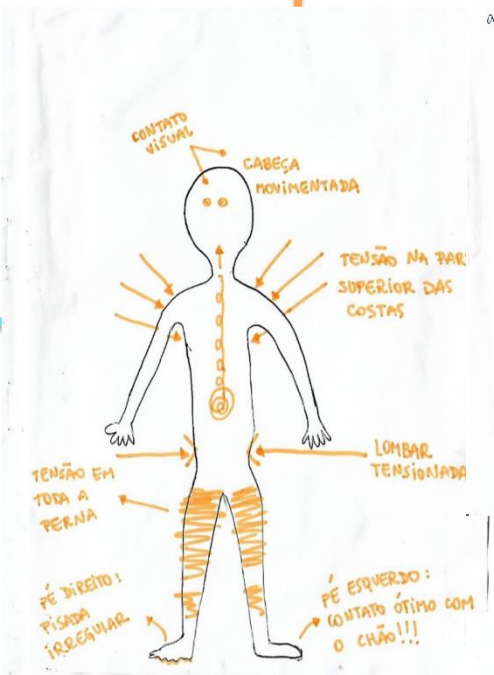 CONTATO
VISUAL
CABEÇA
MOVIMENTADA
TENSÃO NA PAR
SUPERIOR DAS
COSTAS
LOMBAR
TENSIONADA
TENSÃO EM
TODA A
PERNA
PÉ DIREITO:
PISADA
IRREGULAR
PÉ ESQUERDO:
CONTATO ÓTIMO COM
O CHÃO!!!